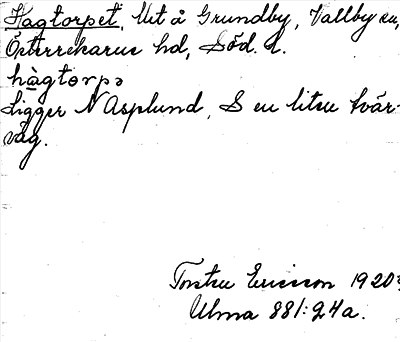 Hagtorpet, Utt å Grundby, Vallby sn,
Österrekarne hd, Söd. l.
hàgtorpə
Ligger N Asplund, S en liten tvär-
väg.
Torsten Ericsson 1920
Ulma 881:24a.